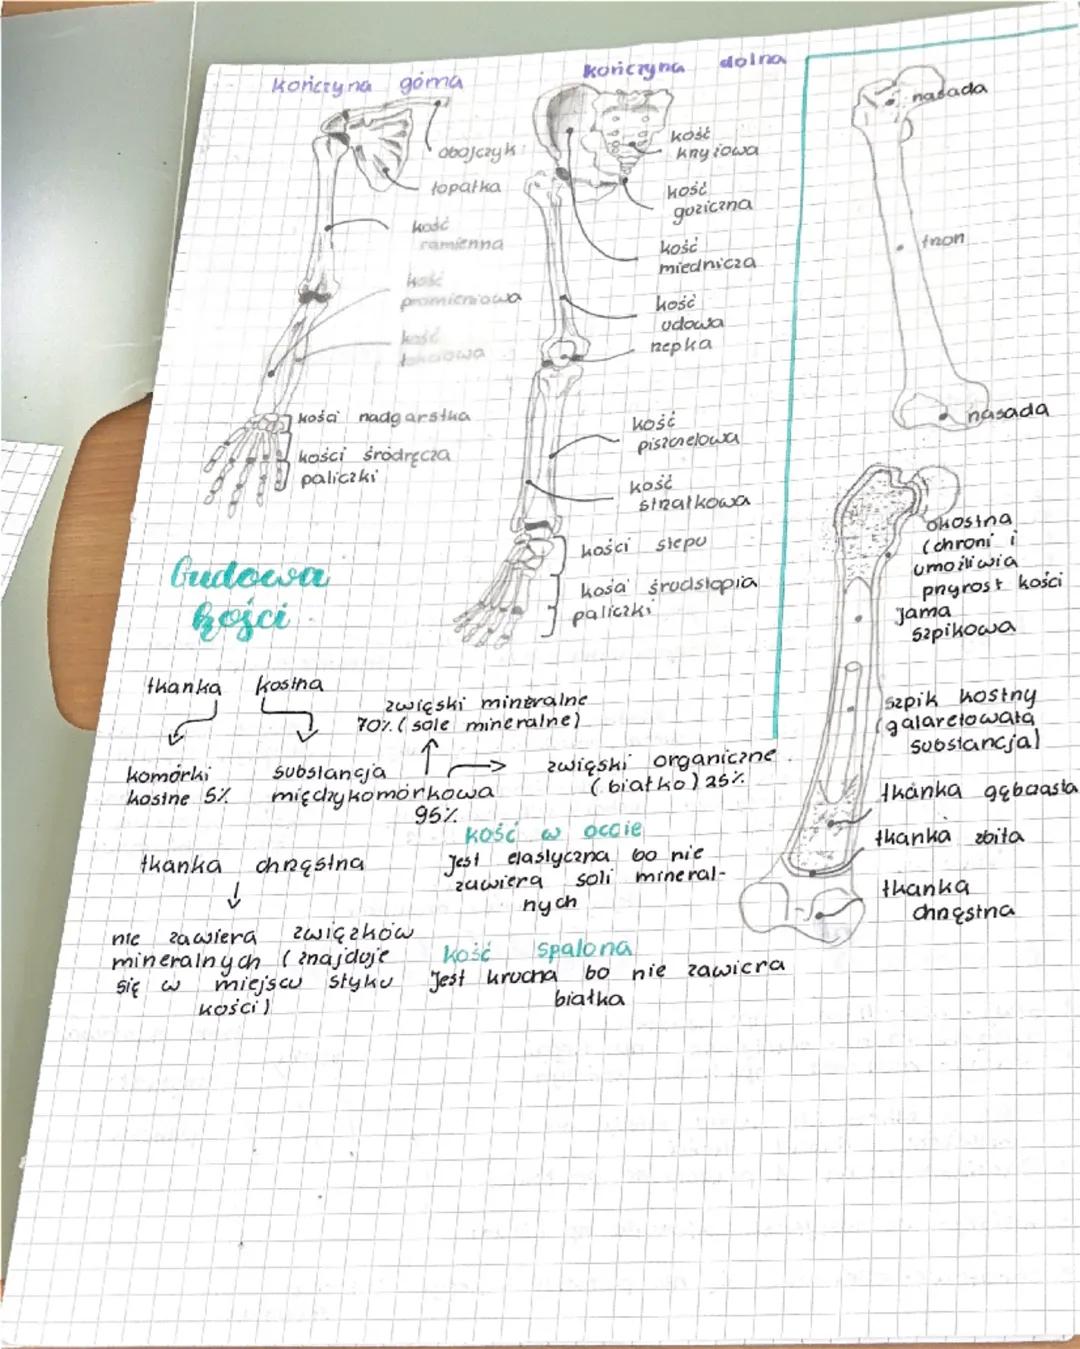 kończyna górna
obojczyk
łopatka
kość
ramienna
kość
promieniowa
kość
łokciowa
kości nadgarstka
kości śródręcza
paliczki
kończyna dolna
kość
krzyżowa
kość
guziczna
kość
miednicza
kość
udowa
rzepka
kość
piszczelowa
kość
strzałkowa
kości stępu
kości śrudstopia
paliczki
nasada
trzon
nasada
okostna
(chroni i
umożliwia
przyrost kości
Jama
szpikowa
szpik kostny
(galaretowata
substancja)
tkanka gąbczasta
tkanka zbita
tkanka
chrzęstna
Budowa
kości
tkanka kostna
komórki
kostne 5%
substancja
międzykomórkowa
95%
związki mineralne
70% (sole mineralne)
związki organiczne
(białko) 25%
tkanka chrzęstna
nie zawiera związków
mineralnych (znajduje
się w miejscu styku
kości)
kość w occie
Jest elastyczna bo nie
zawiera soli mineral-
nych
kość spalona
Jest krucha bo nie zawiera
białka